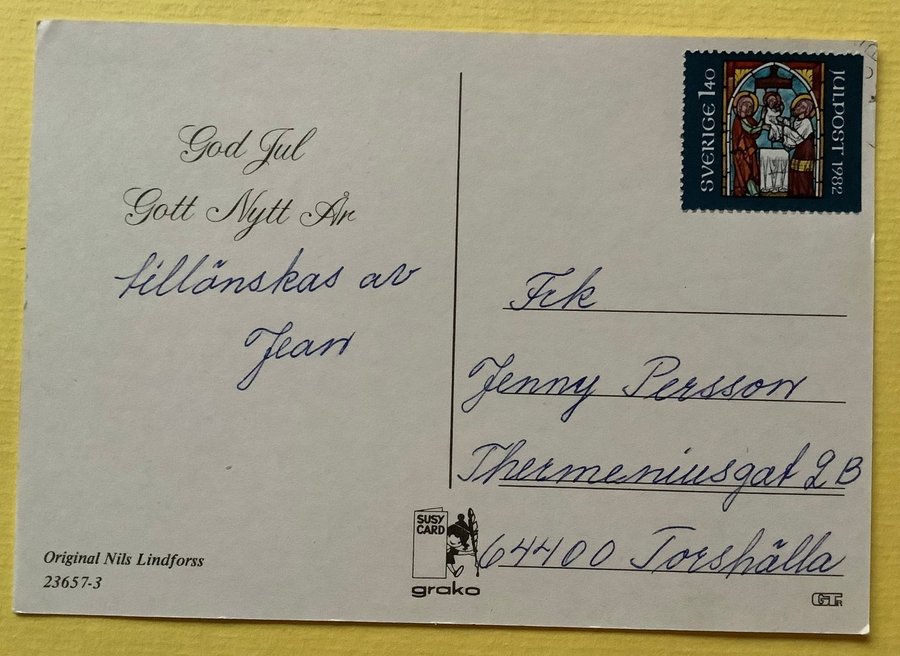 God Jul
Gott Nytt År
tillönskas av
Jean
Original Nils Lindforss
23657-3
SVERIGE 1.40
JULPOST 1982
Frk
Jenny Persson
Thermeniusgat 2 B
64400 Torshälla
SUSY
CARD
grako
GTR